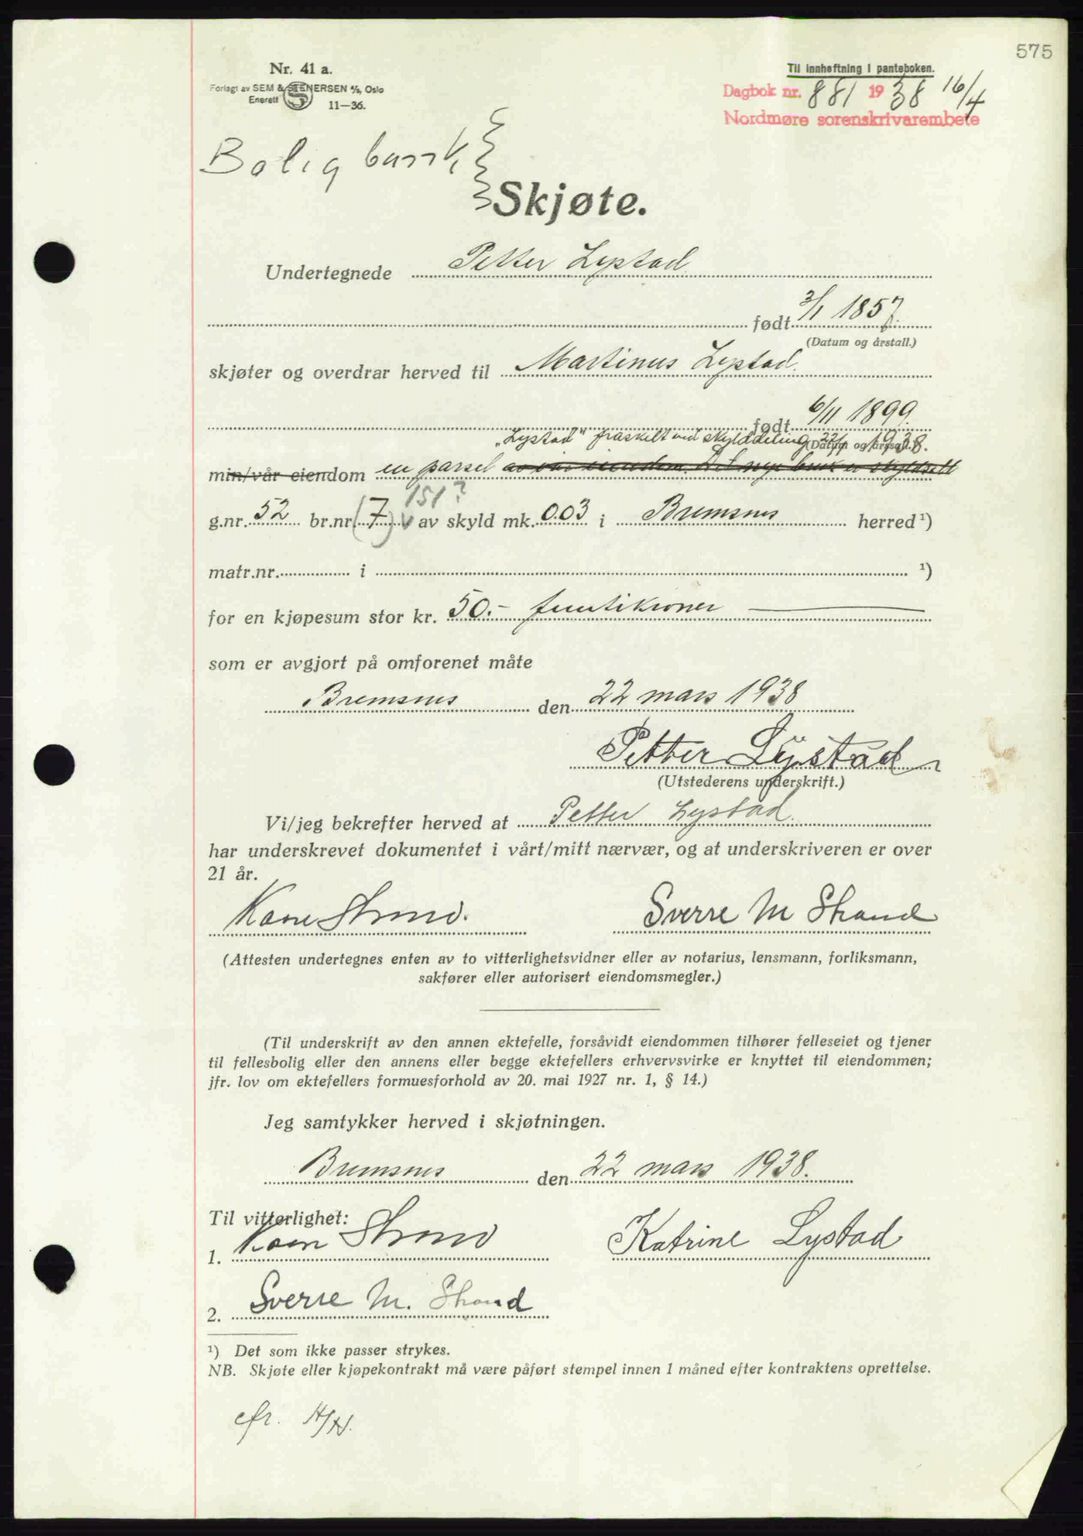 575
Nr. 41 a.
Forlagt av SEM & STENERSEN A/S, Oslo
Enerett S 11—36.
Til innheftning i panteboken.
Dagbok nr. 881 1938 16/4
Nordmøre sorenskrivarembete
Bolig bank
Skjøte.
Undertegnede Petter Lystad
født 2/1 1857.
(Datum og årstall.)
skjøter og overdrar herved til Martinus Lystad.
født 6/11 1899.
(Datum og årstall.)
"Lystad" fraskilt ved skylddeling 22/1 1938.
min/vår eiendom en parsel av vår eiendom. Det nye bruk er skyldsatt
151?
g.nr. 52 br.nr. (7) av skyld mk. 0.03 i Bremsnes herred ¹)
matr.nr. i ¹)
for en kjøpesum stor kr. 50.- femtikroner
som er avgjort på omforenet måte
Bremsnes den 22 mars 1938
Petter Lystad
(Utstederens underskrift.)
Vi/jeg bekrefter herved at Petter Lystad.
har underskrevet dokumentet i vårt/mitt nærvær, og at underskriveren er over
21 år.
Kaare Strand. Sverre M Strand
(Attesten undertegnes enten av to vitterlighetsvidner eller av notarius, lensmann, forliksmann,
sakfører eller autorisert eiendomsmegler.)
(Til underskrift av den annen ektefelle, forsåvidt eiendommen tilhører felleseiet og tjener
til fellesbolig eller den annens eller begge ektefellers erhvervsvirke er knyttet til eiendommen;
jfr. lov om ektefellers formuesforhold av 20. mai 1927 nr. 1, § 14.)
Jeg samtykker herved i skjøtningen.
Bremsnes den 22 mars 1938.
Til vitterlighet:
1. Kaare Strand Katrine Lystad
2. Sverre M. Strand
¹) Det som ikke passer strykes.
NB. Skjøte eller kjøpekontrakt må være påført stempel innen 1 måned efter kontraktens oprettelse.
cfr.